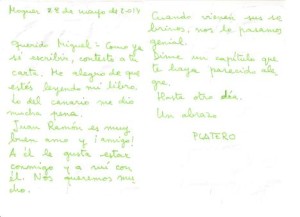 Moguer 29 de mayo de 2017
Querido Miguel: Como ya
sé escribir, contesto a tu
carta. Me alegro de que
estés leyendo mi libro.
Lo del canario me dio
mucha pena.
Juan Ramón es muy
buen amo y ¡amigo!
A él le gusta estar
conmigo y a mi con
él. Nos queremos mu
cho.
Cuando vienen sus so
brinos, nos lo pasamos
genial.
Dime un capítulo que
te haya parecido ale
gre.
Hasta otro día.
Un abrazo
PLATERO